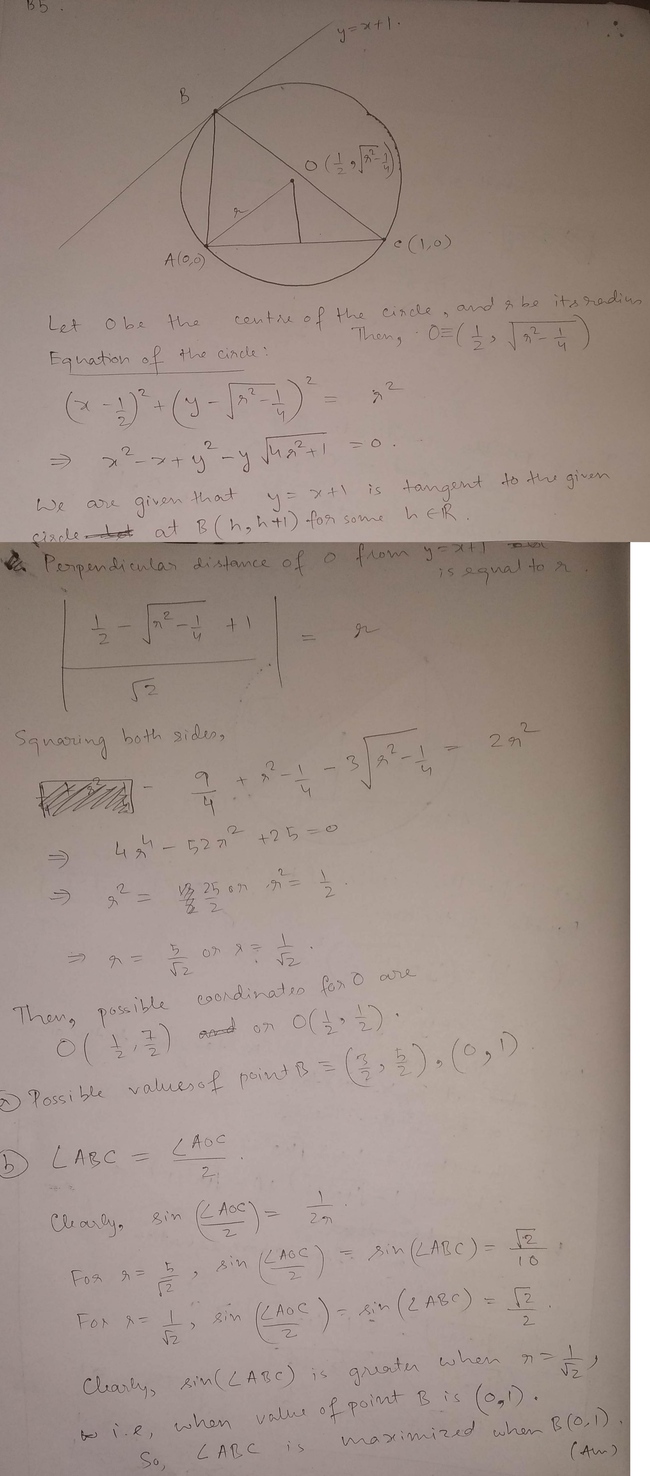 B5.
y=x+1.
B
O(1/2, √(r²-1/4))
r
A(0,0)
C(1,0)
Let O be the centre of the circle, and r be its radius
Then, O≡(1/2, √(r²-1/4))
Equation of the circle:
(x-1/2)² + (y-√(r²-1/4))² = r²
⇒ x²-x+y²-y√(4r²+1) = 0.
We are given that y=x+1 is tangent to the given
circle at B(h,h+1) for some h∈R.
Perpendicular distance of O from y=x+1
is equal to r.
|(1/2 - √(r²-1/4) + 1)/√2| = r
Squaring both sides,
9/4 + r² - 1/4 - 3√(r²-1/4) = 2r²
⇒ 4r⁴ - 52r² + 25 = 0
⇒ r² = 25/2 or r² = 1/2.
⇒ r = 5/√2 or r = 1/√2.
Then, possible coordinates for O are
O(1/2, 7/2) or O(1/2, 1/2).
a) Possible values of point B ≡ (3/2, 5/2), (0,1)
b) ∠ABC = ∠AOC/2.
Clearly, sin(∠AOC/2) = 1/2r
For r = 5/√2, sin(∠AOC/2) = sin(∠ABC) = √2/10.
For r = 1/√2, sin(∠AOC/2) = sin(∠ABC) = √2/2.
Clearly, sin(∠ABC) is greater when r = 1/√2,
i.e, when value of point B is (0,1).
So, ∠ABC is maximized when B(0,1).
(Ans)